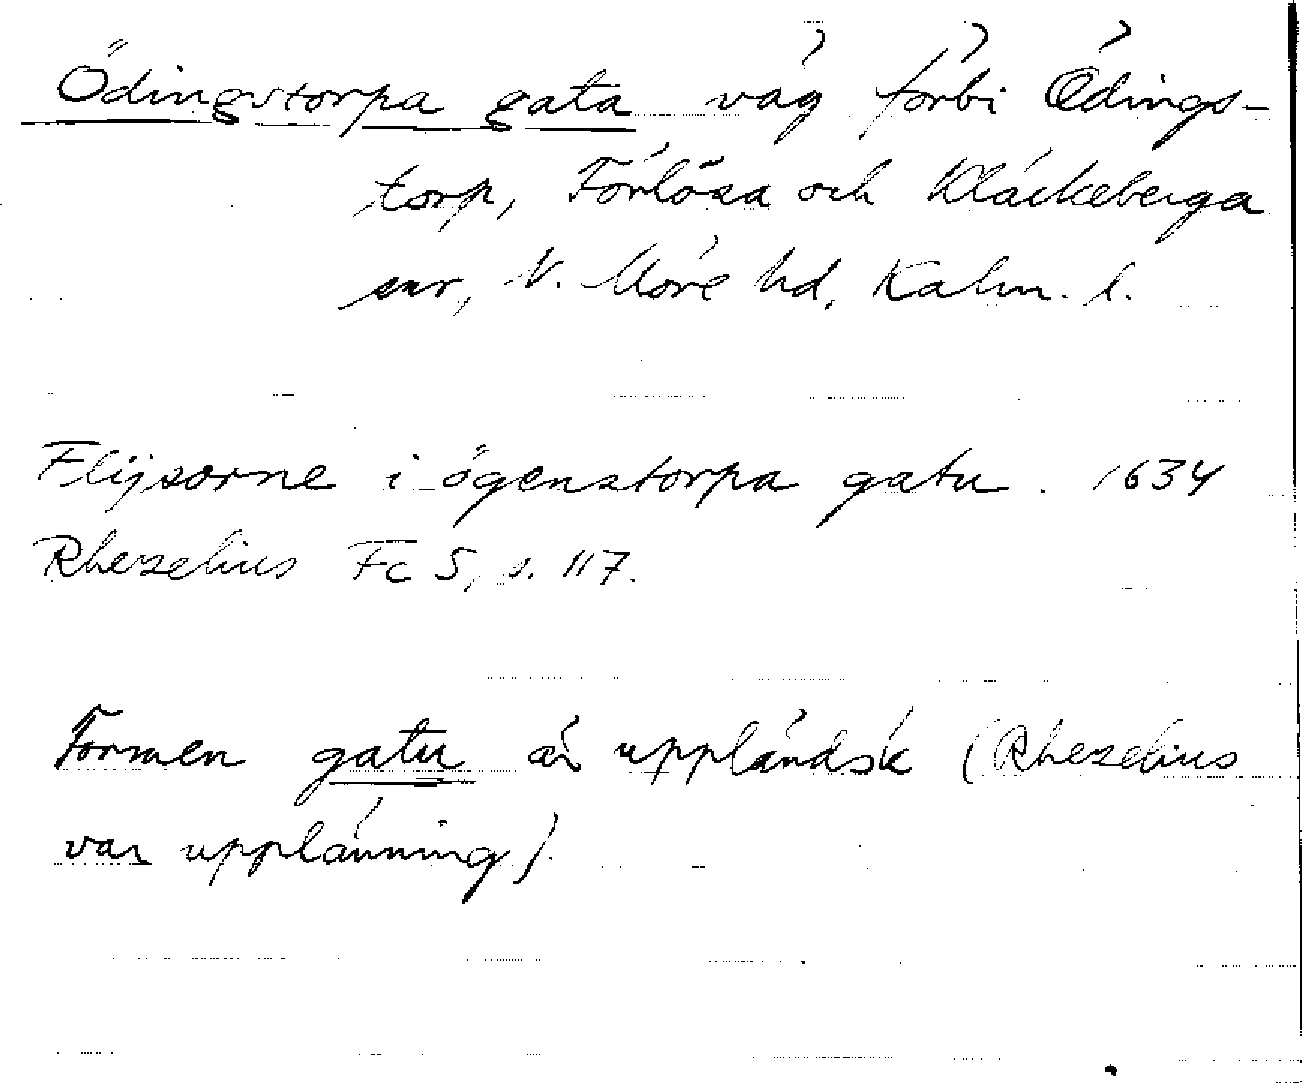 Ödingstorpa gata väg förbi Ödings-
torp, Förlösa och Kläckeberga
snr, N. Möre hd, Kalm. l.
Flijsorne i ögenstorpa gatu. 1634
Rhezelius Fc 5, s. 117.
Formen gatu är uppländsk (Rhezelius
var upplänning).